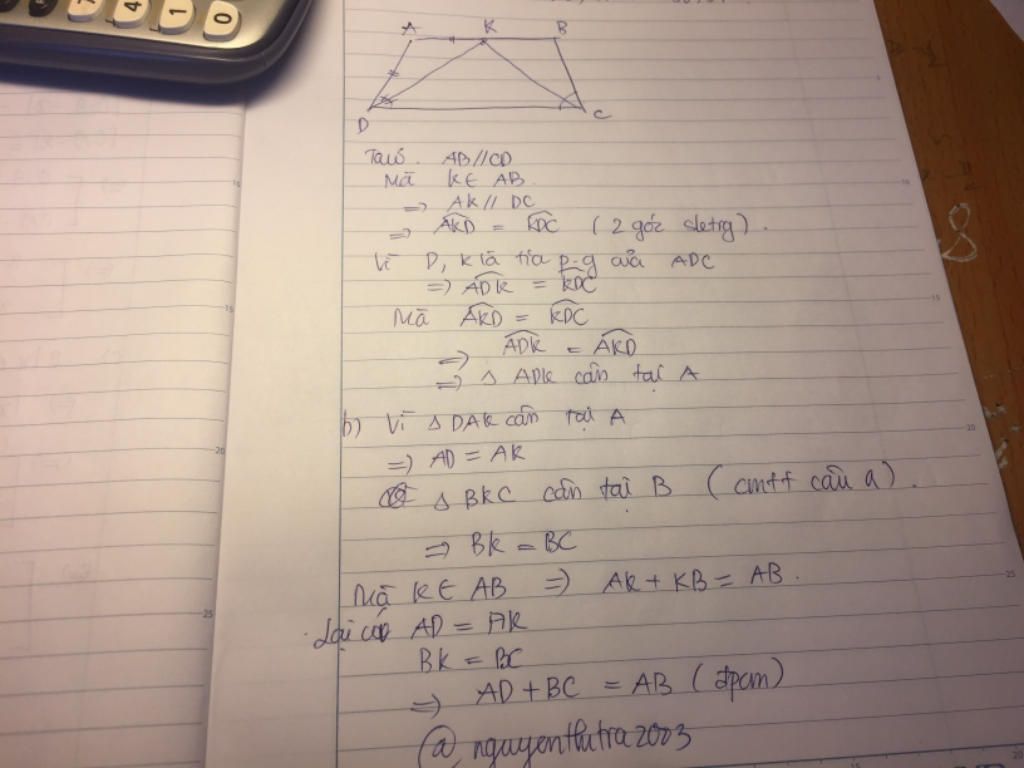 7
4
1
0
A K B
D C
Ta có. AB//CD
Mà K∈ AB.
=> AK// DC
=> AKD = KDC ( 2 góc sletrg ).
Vì D, K là tia p-g của ADC
=> ADK = KDC
Mà AKD = KDC
=> ADK = AKD
=> △ ADK cân tại A
b) Vì △ DAK cân tại A
=> AD = AK
△ BKC cân tại B ( cmtt câu a ).
=> BK = BC
Mà K∈ AB => AK + KB = AB.
Lại có AD = AK
BK = BC
=> AD + BC = AB ( đpcm)
@ nguyenthutra2003